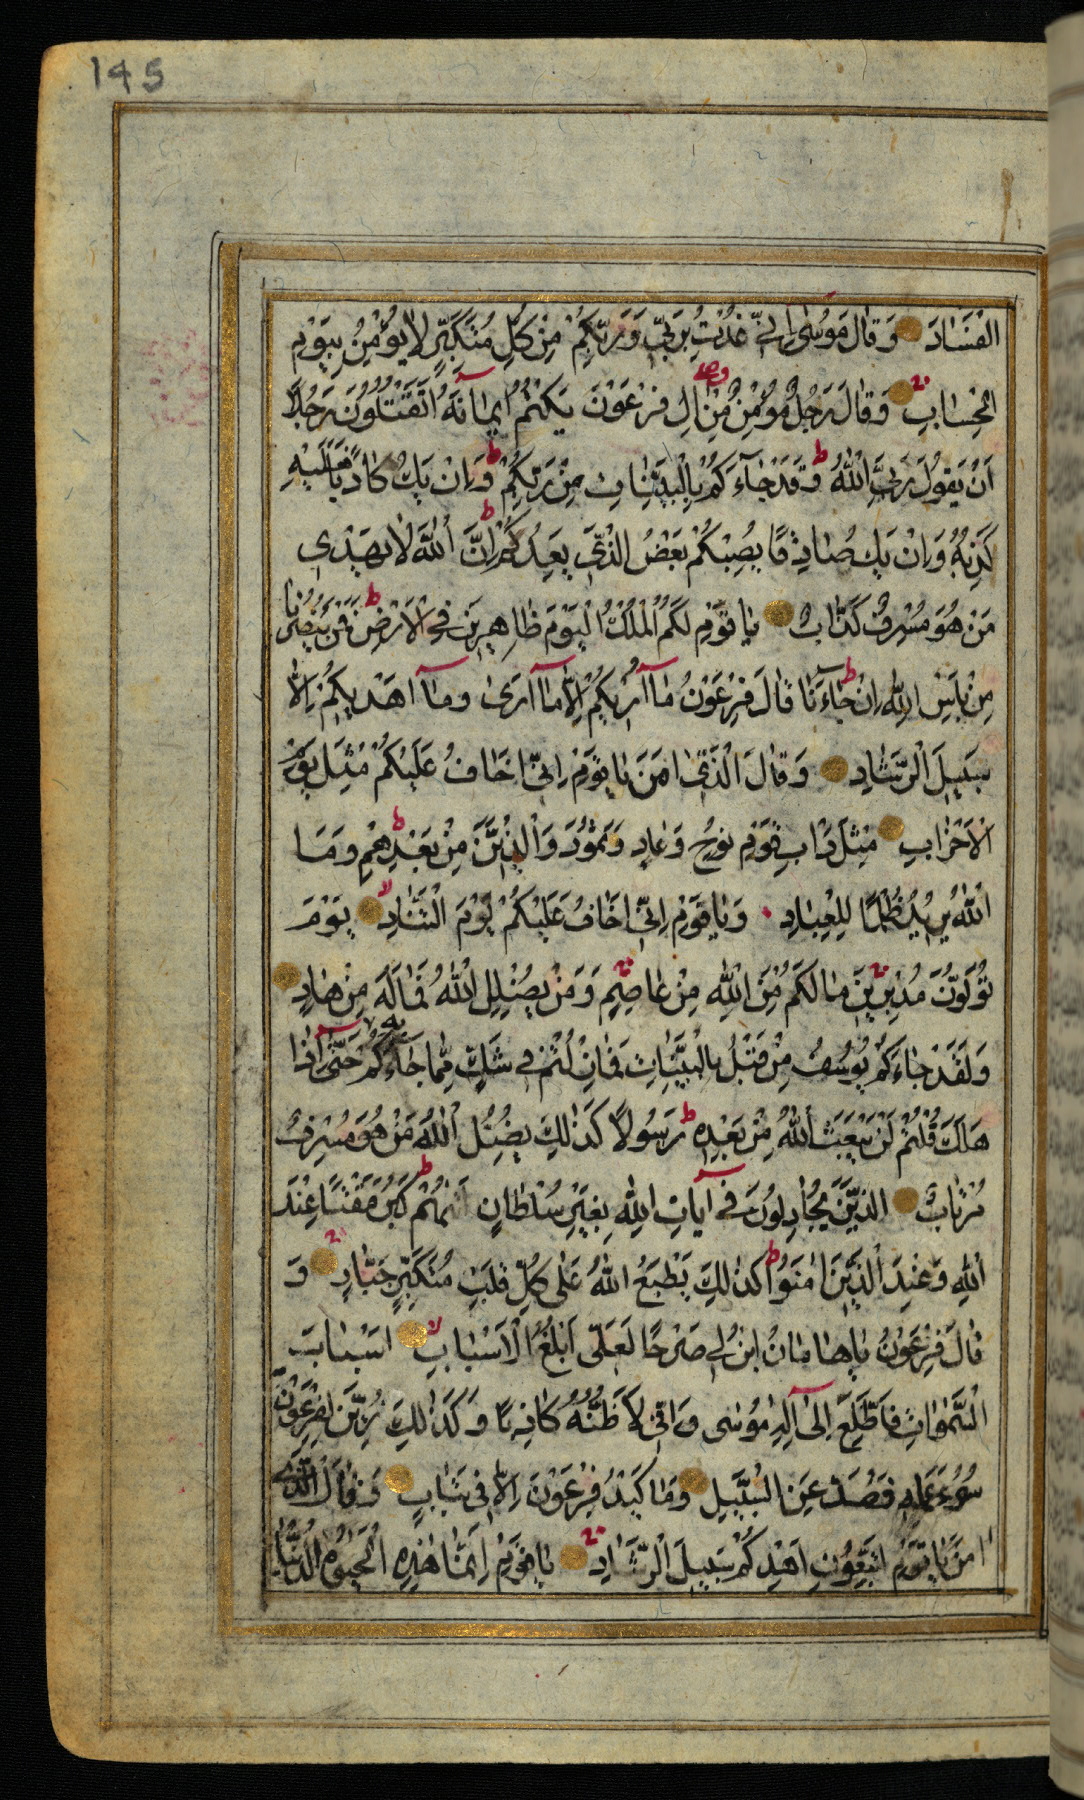 145
الفساد وقال موسى اني عذت بربي وربكم من كل متكبر لا يؤمن بيوم
الحساب وقال رجل مؤمن من ال فرعون يكتم ايمانه اتقتلون رجلا
ان يقول ربي الله وقد جاءكم بالبينات من ربكم وان يك كاذبا فعليه
كذبه وان يك صادقا يصبكم بعض الذي يعدكم ان الله لا يهدي
من هو مسرف كذاب يا قوم لكم الملك اليوم ظاهرين في الارض فمن ينصرنا
من باس الله ان جاءنا قال فرعون ما اريكم الا ما ارى وما اهديكم الا
سبيل الرشاد وقال الذي امن يا قوم اني اخاف عليكم مثل يوم
الاحزاب مثل داب قوم نوح وعاد وثمود والذين من بعدهم وما
الله يريد ظلما للعباد ويا قوم اني اخاف عليكم يوم التناد يوم
تولون مدبرين ما لكم من الله من عاصم ومن يضلل الله فما له من هاد
ولقد جاءكم يوسف من قبل بالبينات فما زلتم في شك مما جاءكم به حتى اذا
هلك قلتم لن يبعث الله من بعده رسولا كذلك يضل الله من هو مسرف
مرتاب الذين يجادلون في آيات الله بغير سلطان اتيهم كبر مقتا عند
الله وعند الذين امنوا كذلك يطبع الله على كل قلب متكبر جبار و
قال فرعون يا هامان ابن لي صرحا لعلي ابلغ الاسباب اسباب
السموات فاطلع الى اله موسى واني لاظنه كاذبا وكذلك زين لفرعون
سوء عمله وصد عن السبيل وما كيد فرعون الا في تباب وقال الذي
امن يا قوم اتبعون اهدكم سبيل الرشاد يا قوم انما هذه الحيوة الدنيا